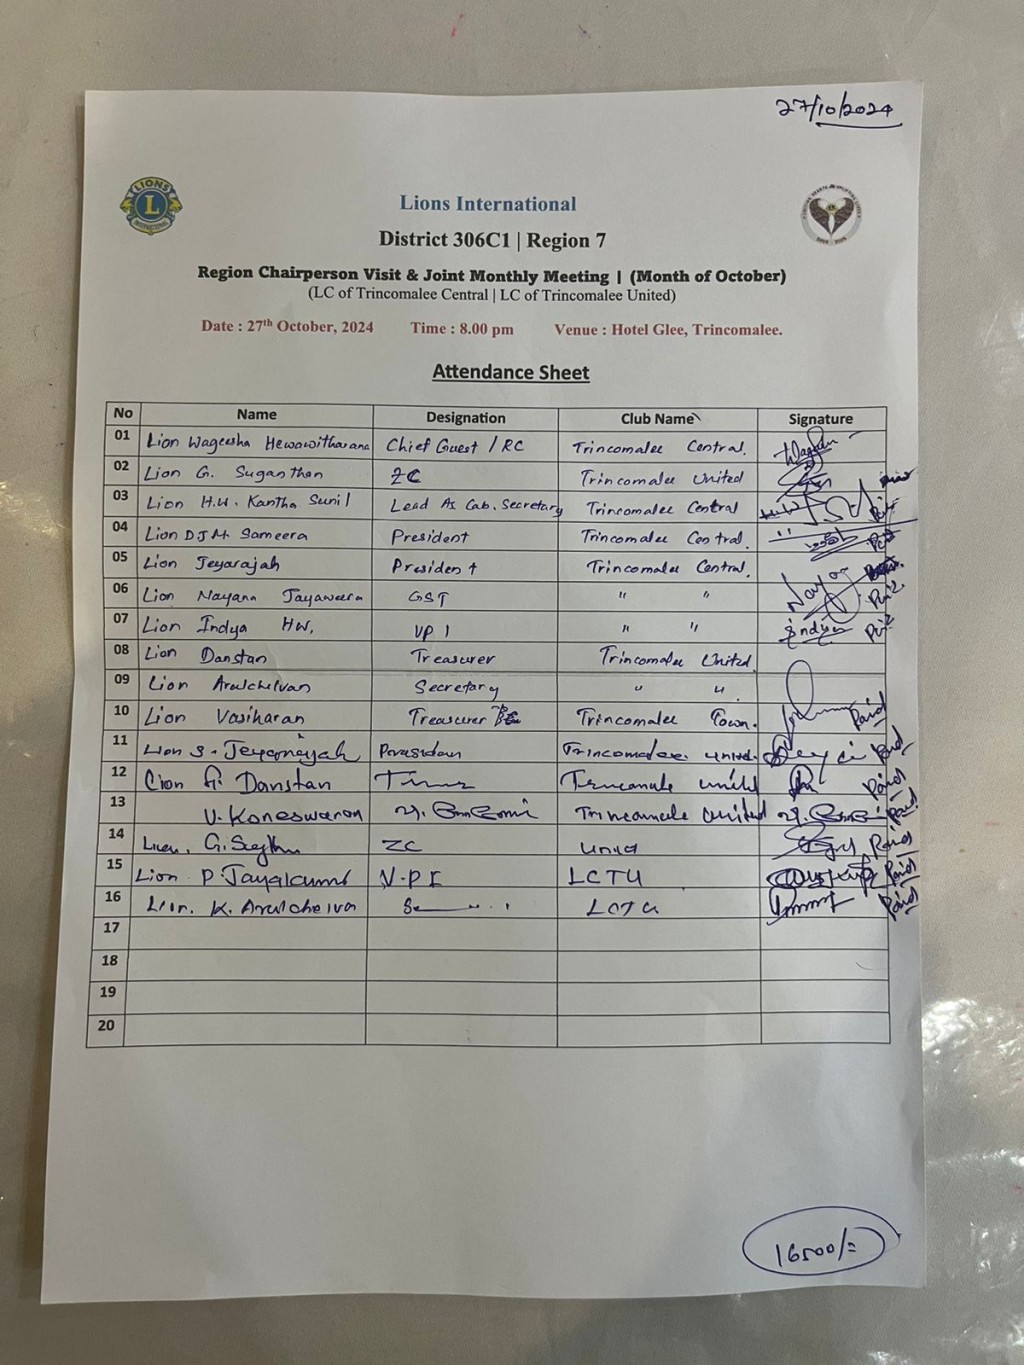 27/10/2024
LIONS
L
INTERNATIONAL
Lions International
District 306C1 | Region 7
Region Chairperson Visit & Joint Monthly Meeting | (Month of October)
(LC of Trincomalee Central | LC of Trincomalee United)
Date : 27th October, 2024 Time : 8.00 pm Venue : Hotel Glee, Trincomalee.
Attendance Sheet
No Name Designation Club Name Signature
01 Lion Wageesha Hewawitharana Chief Guest / RC Trincomalee Central.
02 Lion G. Suganthan ZC Trincomalee United
03 Lion H.W. Kantha Sunil Lead As Cab. Secretary Trincomalee Central
04 Lion D.J.M. Sameera President Trincomalee Central.
05 Lion Jeyarajah President Trincomalee Central.
06 Lion Nayana Jayaweera GST " "
07 Lion Indya HW. VP 1 " " Indya
08 Lion Danstan Treasurer Trincomalee United.
09 Lion Arulchelvan Secretary " "
10 Lion Vasiharan Treasurer Trincomalee Town. Paid
11 Lion S. Jeyarajah Trincomalee United. Paid
12 Lion G. Danstan Trincomale United Paid
13 V. Koneswaran Trincomale United Paid
14 Lion. ZC United Paid
15 Lion P. Jayakumar V-P I LCTU Paid
16 Lion. K. Arulchelva LCTU Paid
17
18
19
20
16500/=